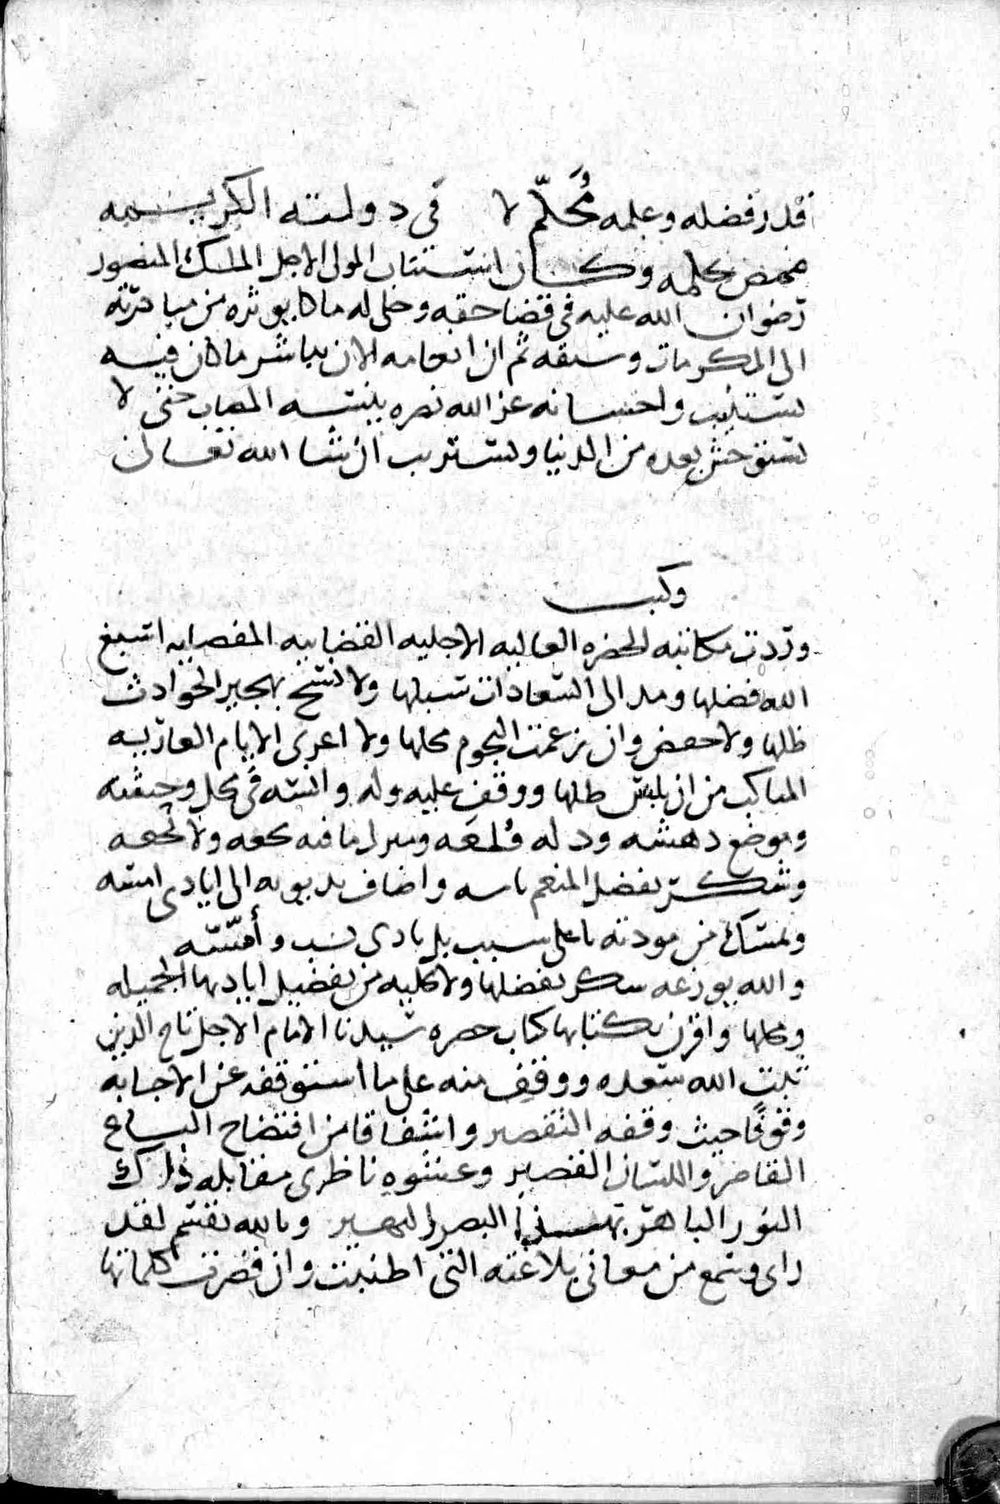 قدر فضله وعلمه مُحَلّم لا في دولته الكريمه
وكان المولى الاجل الملك المنصور
رضوان الله عليه في قضا حقه وخلى له ما كان يوثره من مبادرته
الى المكرمات وسبقه ثم ان انعامه الان يباشر ما كان فيه
يستنيب واحسانه عز الله نصره ينسيه المصاب حتى لا
يستوحش بعده من الدنيا ويستريب ان شا الله تعالى
وكتب
وردت مكاتبه الحضره العاليه الاجليه القضاييه اسبغ
الله فضلها ومد الى السعادات سبلها ولا نسخ بهجير الحوادث
ظلها ولا خفض وان زعمت النجوم محلها ولا اعرى الايام العاريه
المناكب من ان يلبس ووقف عليه وله والسه في محل وحيفته
وموضع دهشه ود له
وشكر بفضل المنعم واضاف الى ايادي امسه
وتمسك من مودته باعلى سبب بل بادى نسب وأمسّه
والله يوزعه شكر تفضلها ولا يخليه من تفضيل اياديها الجميله
واقترن بكتابها كتاب حضره سيدنا الامام الاجل تاج الدين
ثبت الله سعده ووقف منه على ما استوقفه عن الاجابه
وقوفًا حيث وقفه التقصير واشفاقا من افتضاح الباع
القاصر واللسان القصير وعشوه ناظرى مقابله ذلك
النور الباهر بهذا البصر وبالله يقسم لقد
راى وسمع من معانى بلاغته التى اطنبت وان قصرت كلماتها